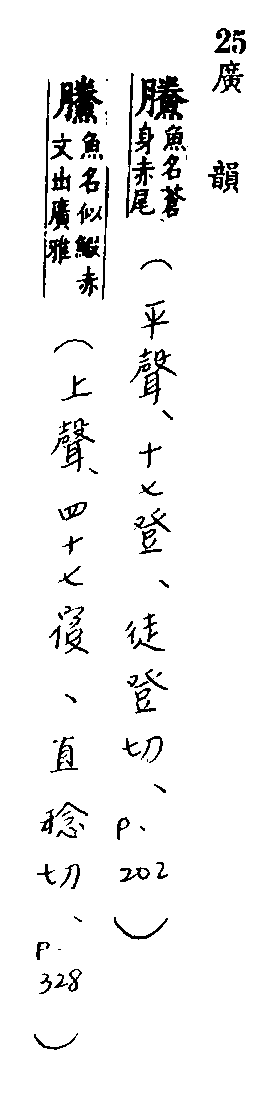 25
廣韻
䲢魚名蒼身赤尾(平聲、十七登、徒登切、p.202)
䲢魚名似鰕赤文出廣雅(上聲、四十七寑、直稔切、p.328)